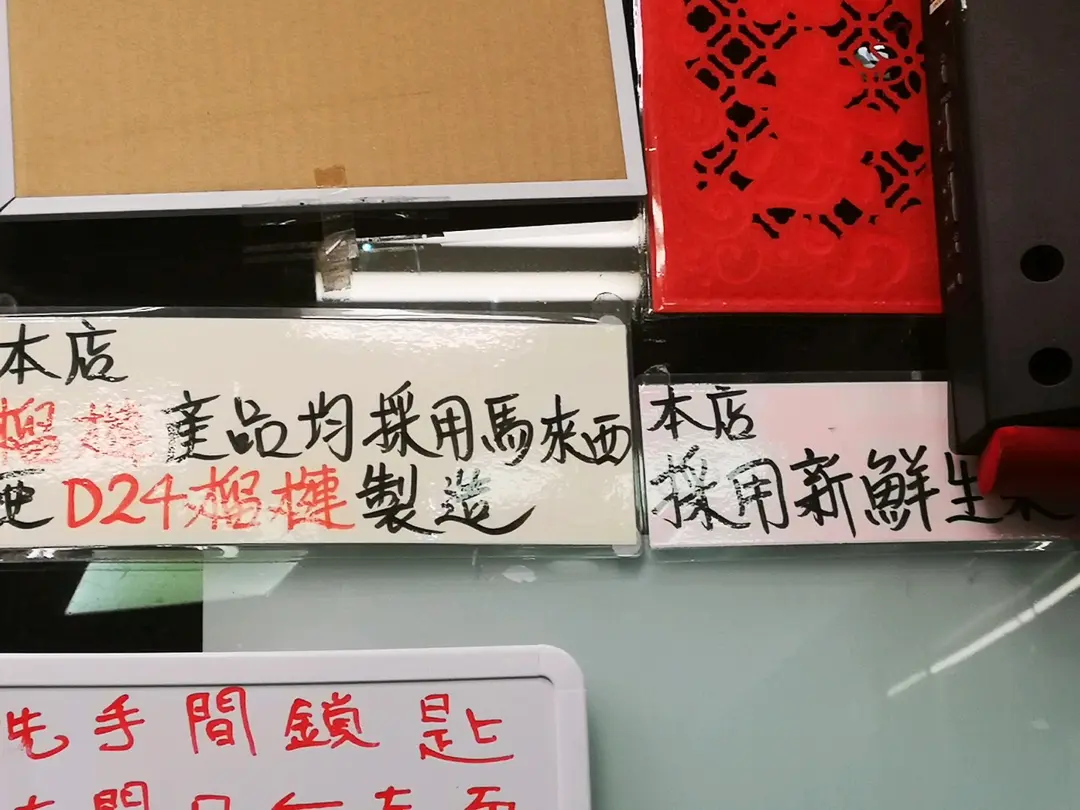 本店
榴槤產品均採用馬來西
亞D24榴槤製造
本店
採用新鮮生
洗手間鎖匙